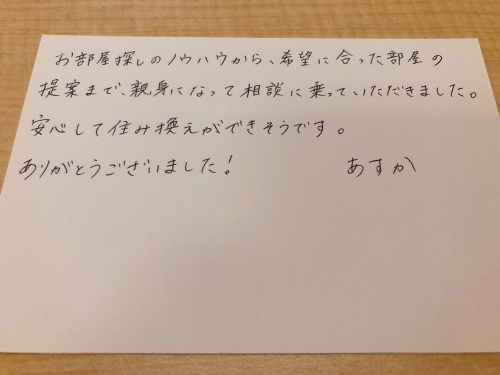 お部屋探しのノウハウから、希望に合った部屋の
提案まで、親身になって相談に乗っていただきました。
安心して住み換えができそうです。
ありがとうございました！ あすか